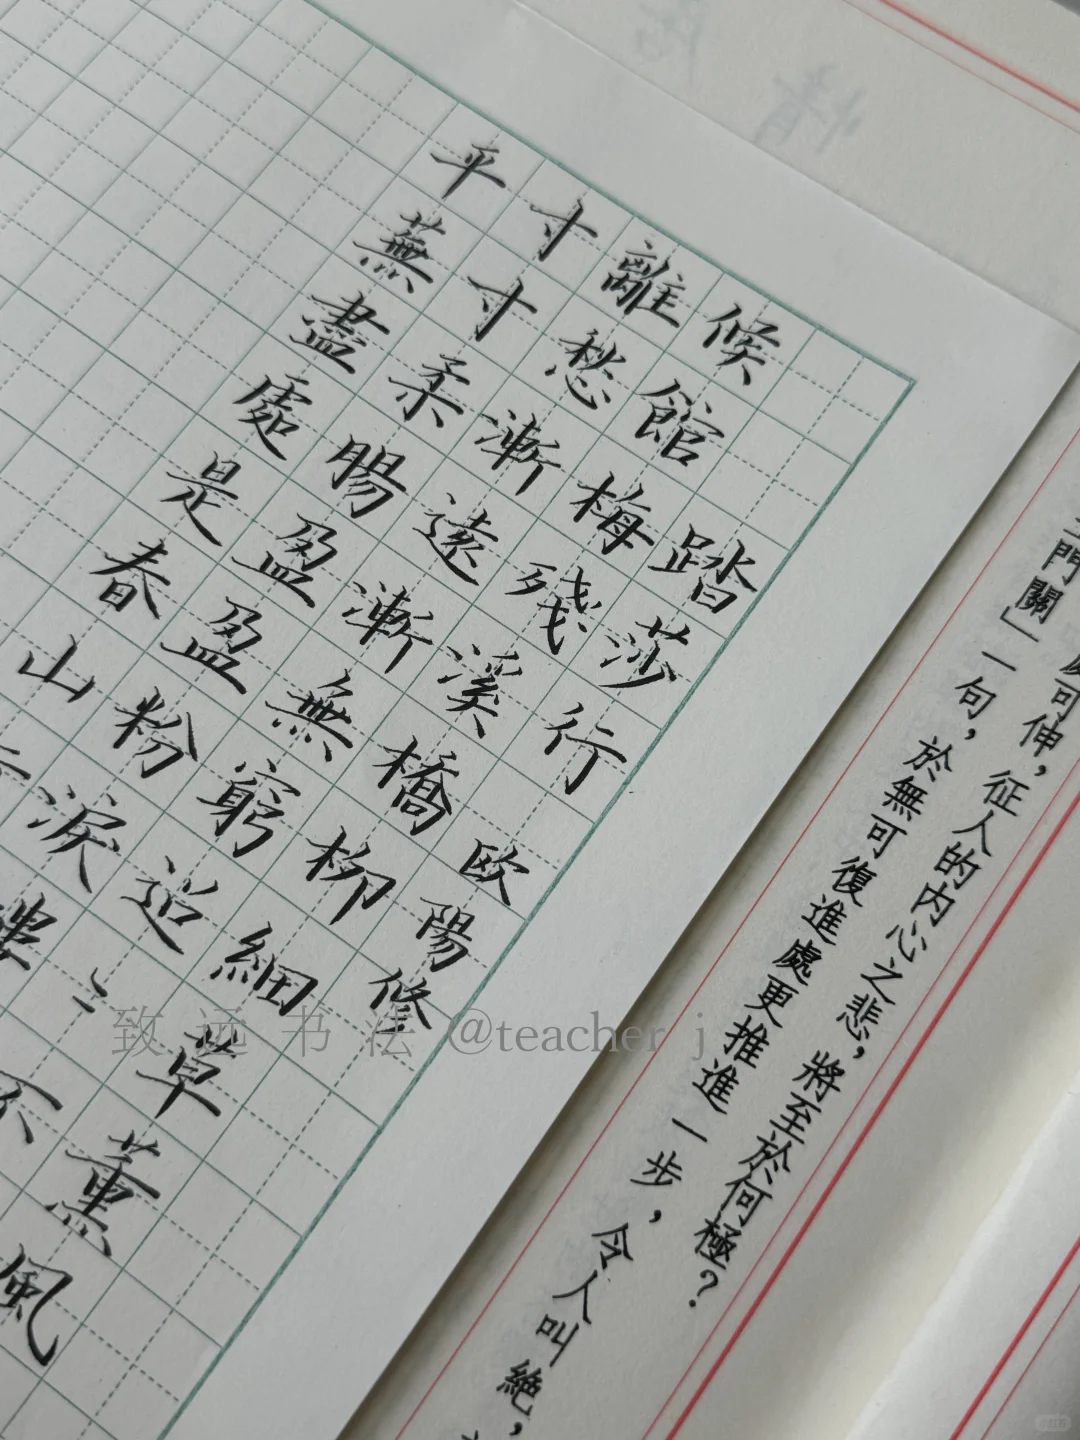 可伸，征人的内心之悲，將至於何極？
門關」一句，於無可復進處更推進一步，令人叫絕，
踏莎行 歐陽修
候館梅殘溪橋柳細草薰風
離愁漸遠漸無窮迢〻不
寸寸柔腸盈盈粉淚樓
平蕪盡處是春山
致远书法@teacher j